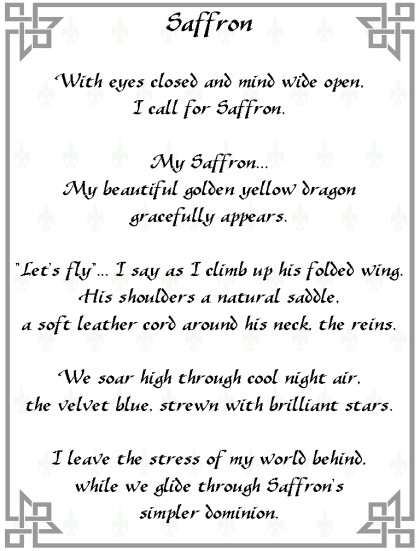 Saffron
With eyes closed and mind wide open,
I call for Saffron.
My Saffron...
My beautiful golden yellow dragon
gracefully appears.
"Let's fly"... I say as I climb up his folded wing.
His shoulders a natural saddle,
a soft leather cord around his neck, the reins.
We soar high through cool night air,
the velvet blue, strewn with brilliant stars.
I leave the stress of my world behind,
while we glide through Saffron's
simpler dominion.